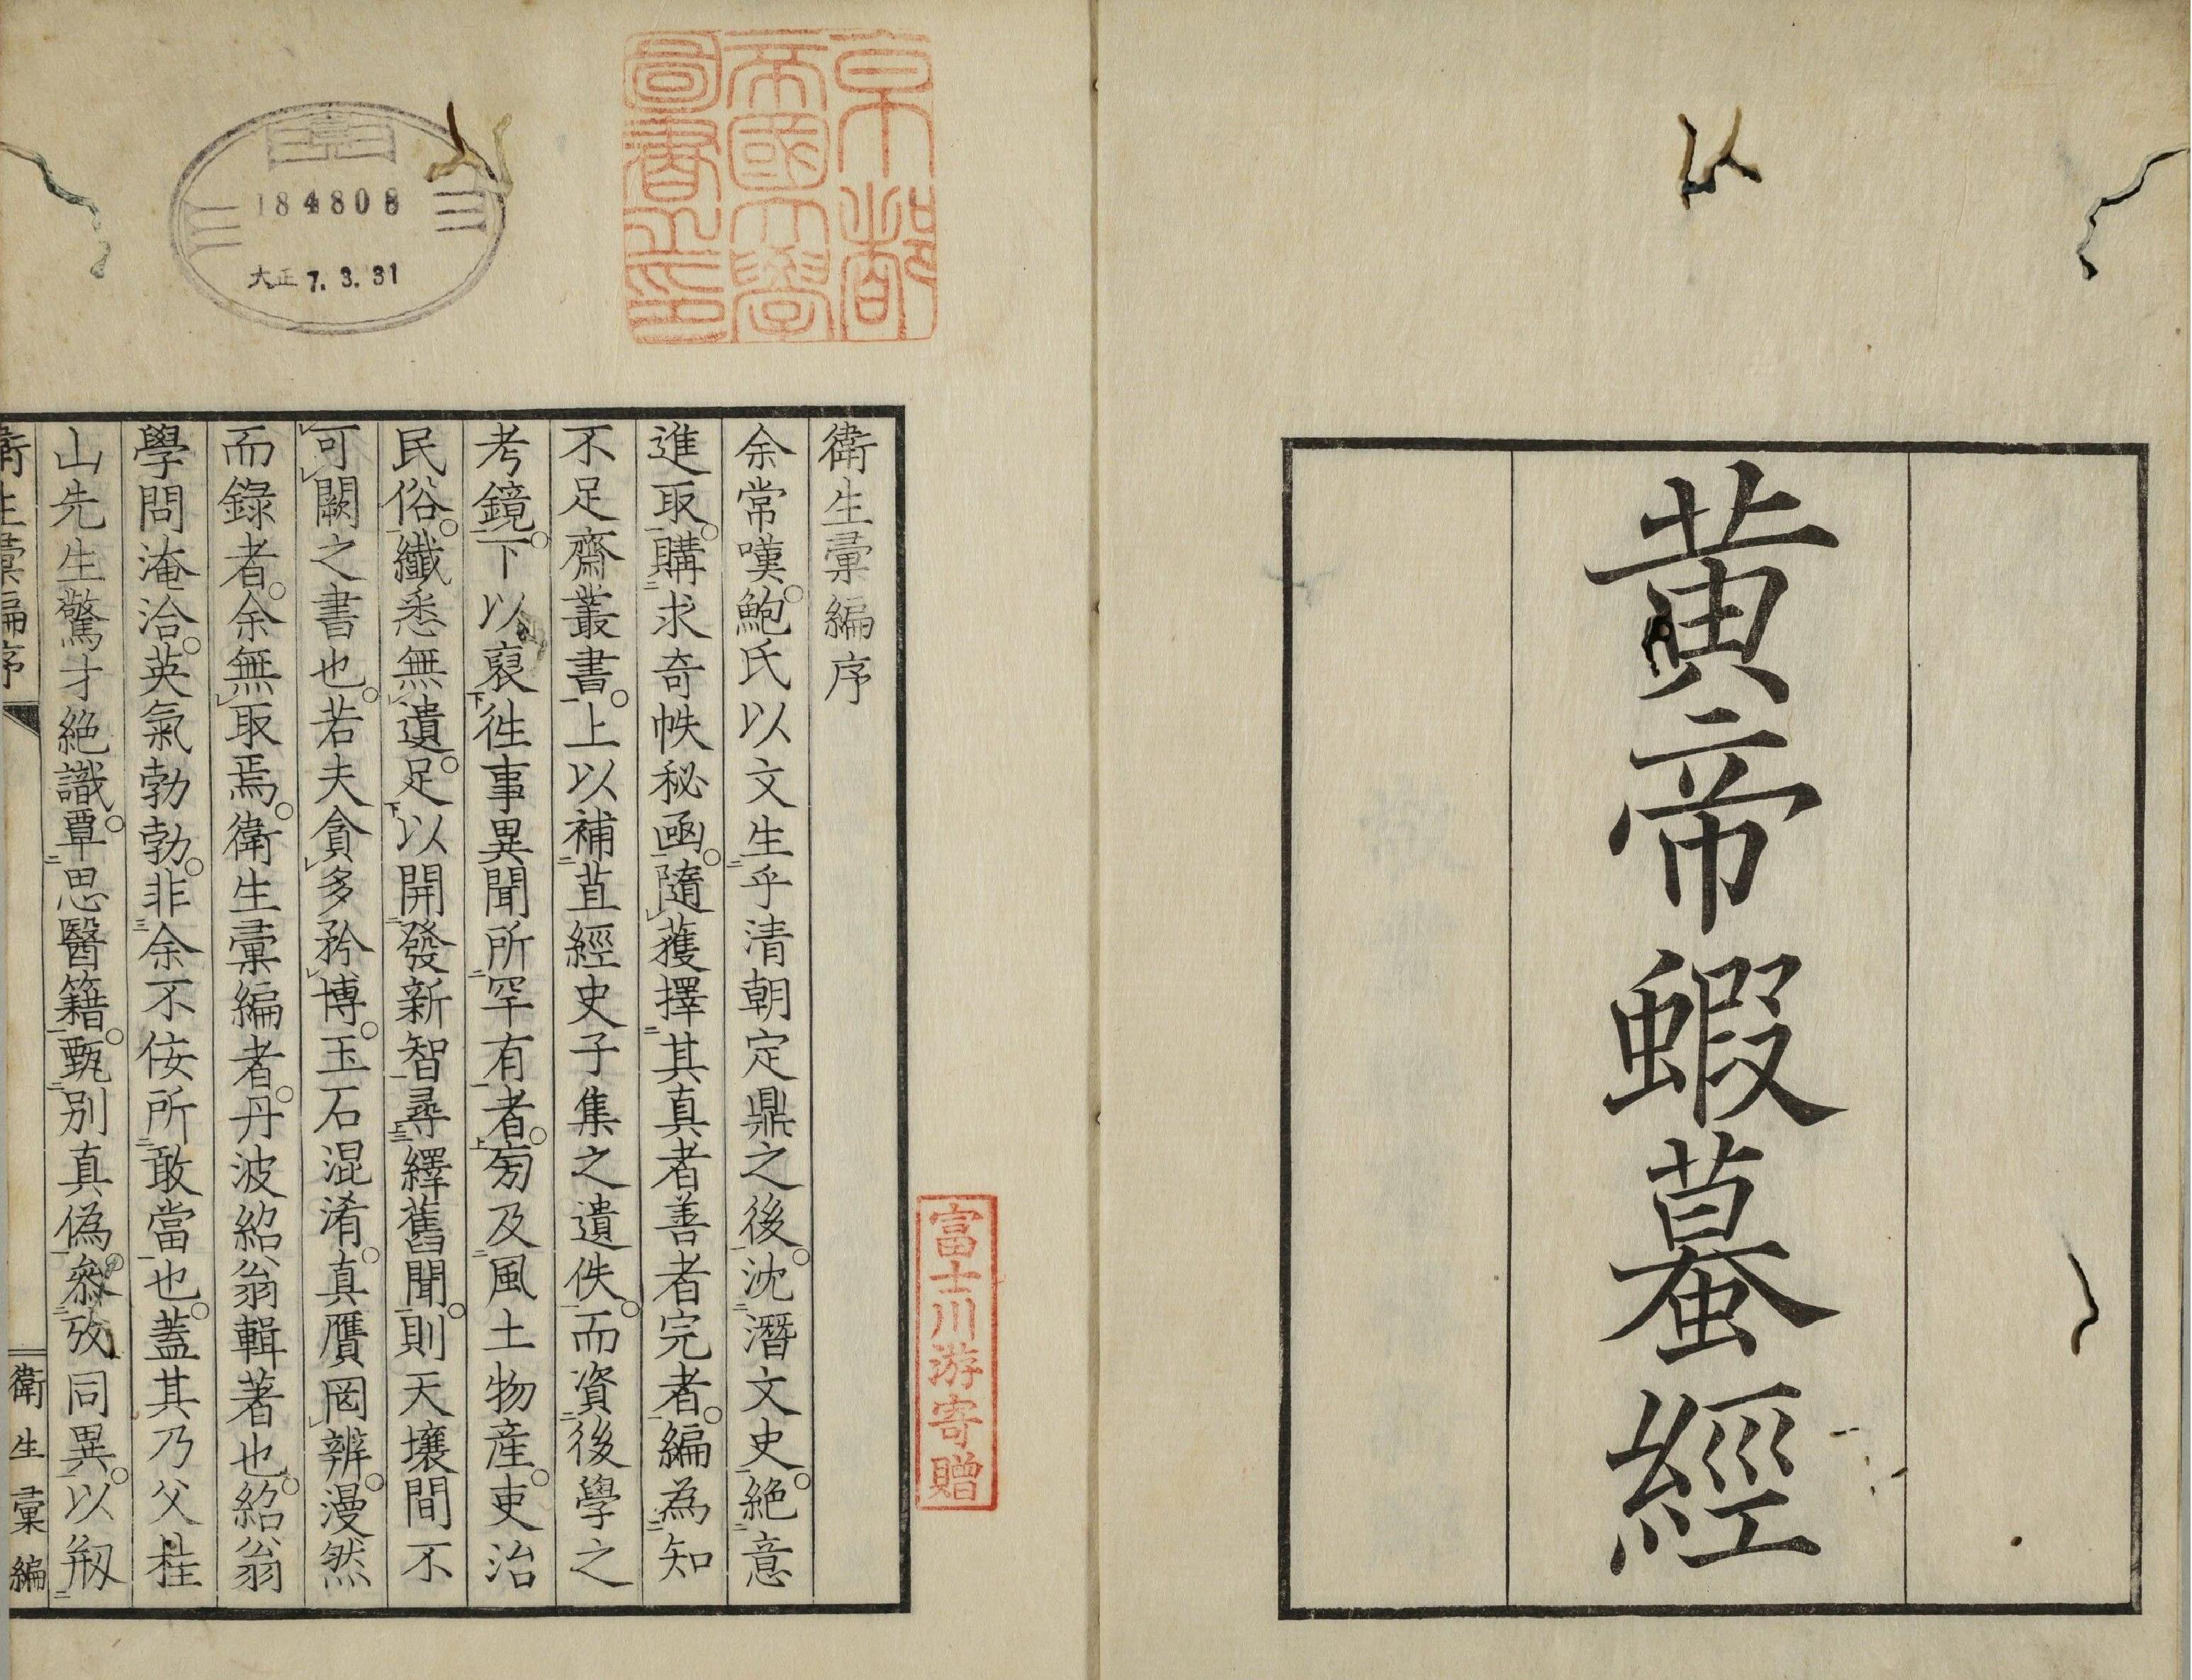 黃帝蝦蟇經
京都
帝國大學
圖書之印
184808
大正 7. 3. 31
富士川游寄贈
衛生彙編序
余常嘆。鮑氏以文生乎清朝定鼎之後。沈潛文史。絶意
進取。購求奇帙秘函。隨獲擇其真者善者完者。編為知
不足齋叢書。上以補苴經史子集之遺佚。而資後學之
考鏡。下以裒徃事異聞所罕有者。匇及風土物產。吏治
民俗。纖悉無遺。足以開發新智尋繹舊聞。則天壤間不
可闕之書也。若夫貪多矜博。玉石混淆。真贋罔辨。漫然
而錄者。余無取焉。衛生彙編者。丹波紹翁輯著也。紹翁
學問淹洽。英氣勃勃。非余不侫所敢當也。蓋其乃父桂
山先生驚才絶識。覃思醫籍。甄別真偽。叅攷同異。以剏
衛生彙編序
衛生彙編